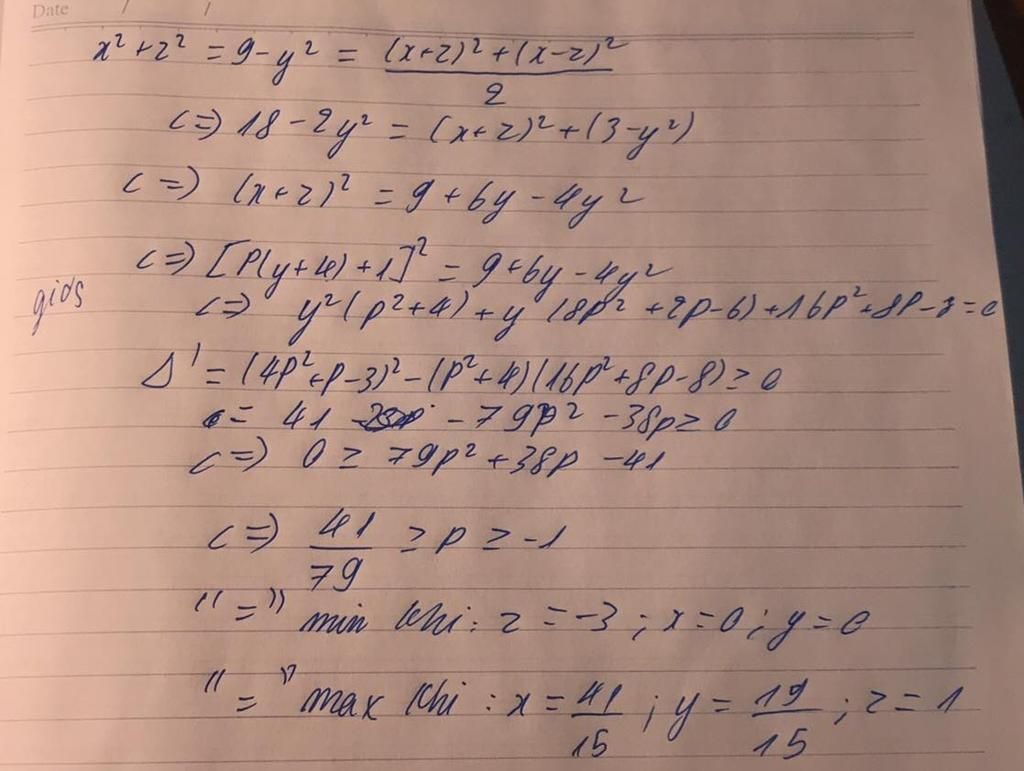 Date / /
x² + z² = 9 - y² = \frac{(x+z)² + (x-z)²}{2}
<=> 18 - 2y² = (x+z)² + (3-y²)
<=> (x+z)² = 9 + 6y - 4y²
<=> [P(y+4)+1]² = 9+6y-4y²
<=> y²(p²+4) + y(8p²+2p-6) + 16p²+8p-8 = 0
Δ' = (4p²+p-3)² - (p²+4)(16p²+8p-8) ≥ 0
= 41 - 79p² - 38p ≥ 0
<=> 0 ≥ 79p² + 38p - 41
<=> \frac{41}{79} ≥ p ≥ -1
"=" min khi: z = -3 ; x = 0 ; y = 0
"=" max khi : x = \frac{41}{15} ; y = \frac{19}{15} ; z = 1